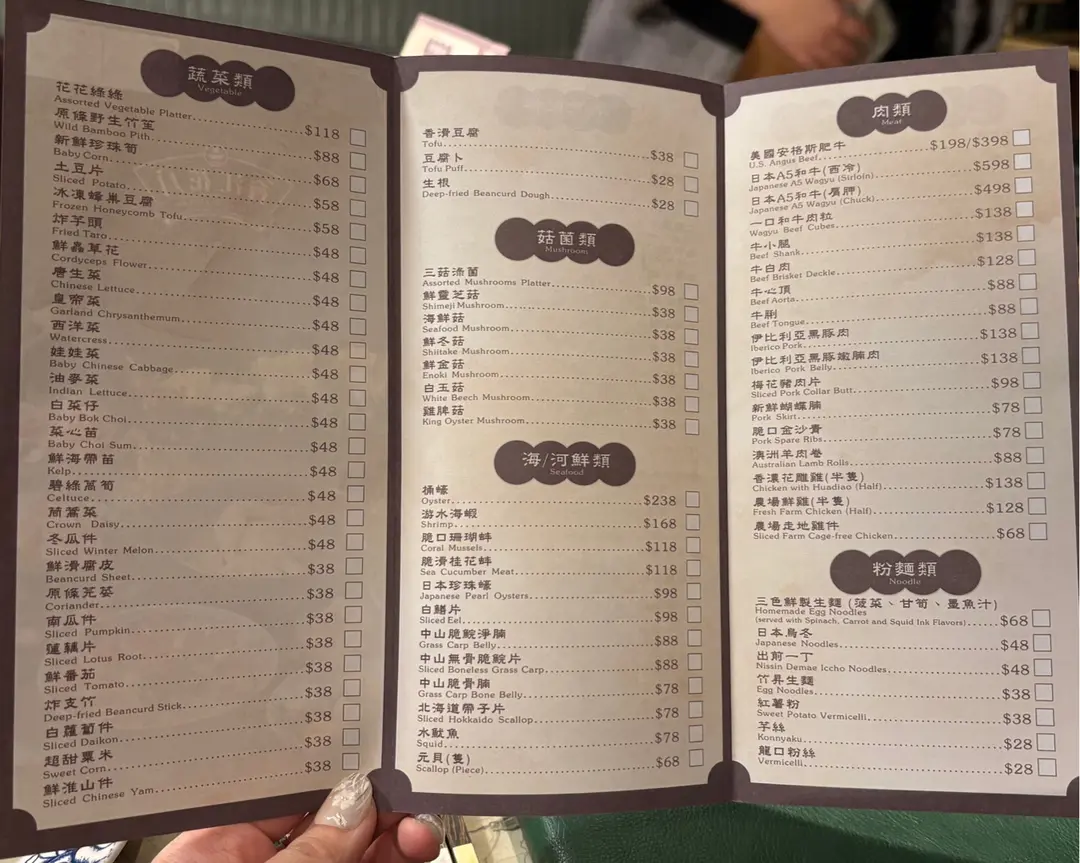 蔬菜類
Vegetable
花花綠綠
Assorted Vegetable Platter $118
原條野生竹笙
Wild Bamboo Pith $88
新鮮珍珠筍
Baby Corn $68
土豆片
Sliced Potato $58
冰凍蜂巢豆腐
Frozen Honeycomb Tofu $58
炸芋頭
Fried Taro $48
鮮蟲草花
Cordyceps Flower $48
唐生菜
Chinese Lettuce $48
皇帝菜
Garland Chrysanthemum $48
西洋菜
Watercress $48
娃娃菜
Baby Chinese Cabbage $48
油麥菜
Indian Lettuce $48
白菜仔
Baby Bok Choi $48
菜心苗
Baby Choi Sum $48
鮮海帶苗
Kelp $48
碧綠萵筍
Celtuce $48
茼蒿菜
Crown Daisy $48
冬瓜件
Sliced Winter Melon $48
鮮滑腐皮
Beancurd Sheet $38
原條芫荽
Coriander $38
南瓜件
Sliced Pumpkin $38
蓮藕片
Sliced Lotus Root $38
鮮番茄
Sliced Tomato $38
炸支竹
Deep-fried Beancurd Stick $38
白蘿蔔件
Sliced Daikon $38
超甜粟米
Sweet Corn $38
鮮淮山件
Sliced Chinese Yam $38
香滑豆腐
Tofu $38
豆腐卜
Tofu Puff $28
生根
Deep-fried Beancurd Dough $28
菇菌類
Mushroom
三菇添菌
Assorted Mushrooms Platter $98
鮮靈芝菇
Shimeji Mushroom $38
海鮮菇
Seafood Mushroom $38
鮮冬菇
Shiitake Mushroom $38
鮮金菇
Enoki Mushroom $38
白玉菇
White Beech Mushroom $38
雞脾菇
King Oyster Mushroom $38
海/河鮮類
Seafood
桶蠔
Oyster $238
游水海蝦
Shrimp $168
脆口珊瑚蚌
Coral Mussels $118
脆滑桂花蚌
Sea Cucumber Meat $118
日本珍珠蠔
Japanese Pearl Oysters $98
白鱔片
Sliced Eel $98
中山脆鯇淨腩
Grass Carp Belly $88
中山無骨脆鯇片
Sliced Boneless Grass Carp $88
中山脆骨腩
Grass Carp Bone Belly $78
北海道帶子片
Sliced Hokkaido Scallop $78
水魷魚
Squid $78
元貝(隻)
Scallop (Piece) $68
肉類
Meat
美國安格斯肥牛
U.S. Angus Beef $198/$398
日本A5和牛(西冷)
Japanese A5 Wagyu (Sirloin) $598
日本A5和牛(肩胛)
Japanese A5 Wagyu (Chuck) $498
一口和牛肉粒
Wagyu Beef Cubes $138
牛小腿
Beef Shank $138
牛白肉
Beef Brisket Deckle $128
牛心頂
Beef Aorta $88
牛脷
Beef Tongue $88
伊比利亞黑豚肉
Iberico Pork $138
伊比利亞黑豚嫩腩肉
Iberico Pork Belly $138
梅花豬肉片
Sliced Pork Collar Butt $98
新鮮蝴蝶腩
Pork Skirt $78
脆口金沙骨
Pork Spare Ribs $78
澳洲羊肉卷
Australian Lamb Rolls $88
香濃花雕雞(半隻)
Chicken with Huadiao (Half) $138
農場鮮雞(半隻)
Fresh Farm Chicken (Half) $128
農場走地雞件
Sliced Farm Cage-free Chicken $68
粉麵類
Noodle
三色鮮製生麵 (菠菜、甘筍、墨魚汁)
Homemade Egg Noodles
(served with Spinach, Carrot and Squid Ink Flavors) $68
日本烏冬
Japanese Noodles $48
出前一丁
Nissin Demae Iccho Noodles $48
竹昇生麵
Egg Noodles $38
紅薯粉
Sweet Potato Vermicelli $38
芋絲
Konnyaku $28
龍口粉絲
Vermicelli $28